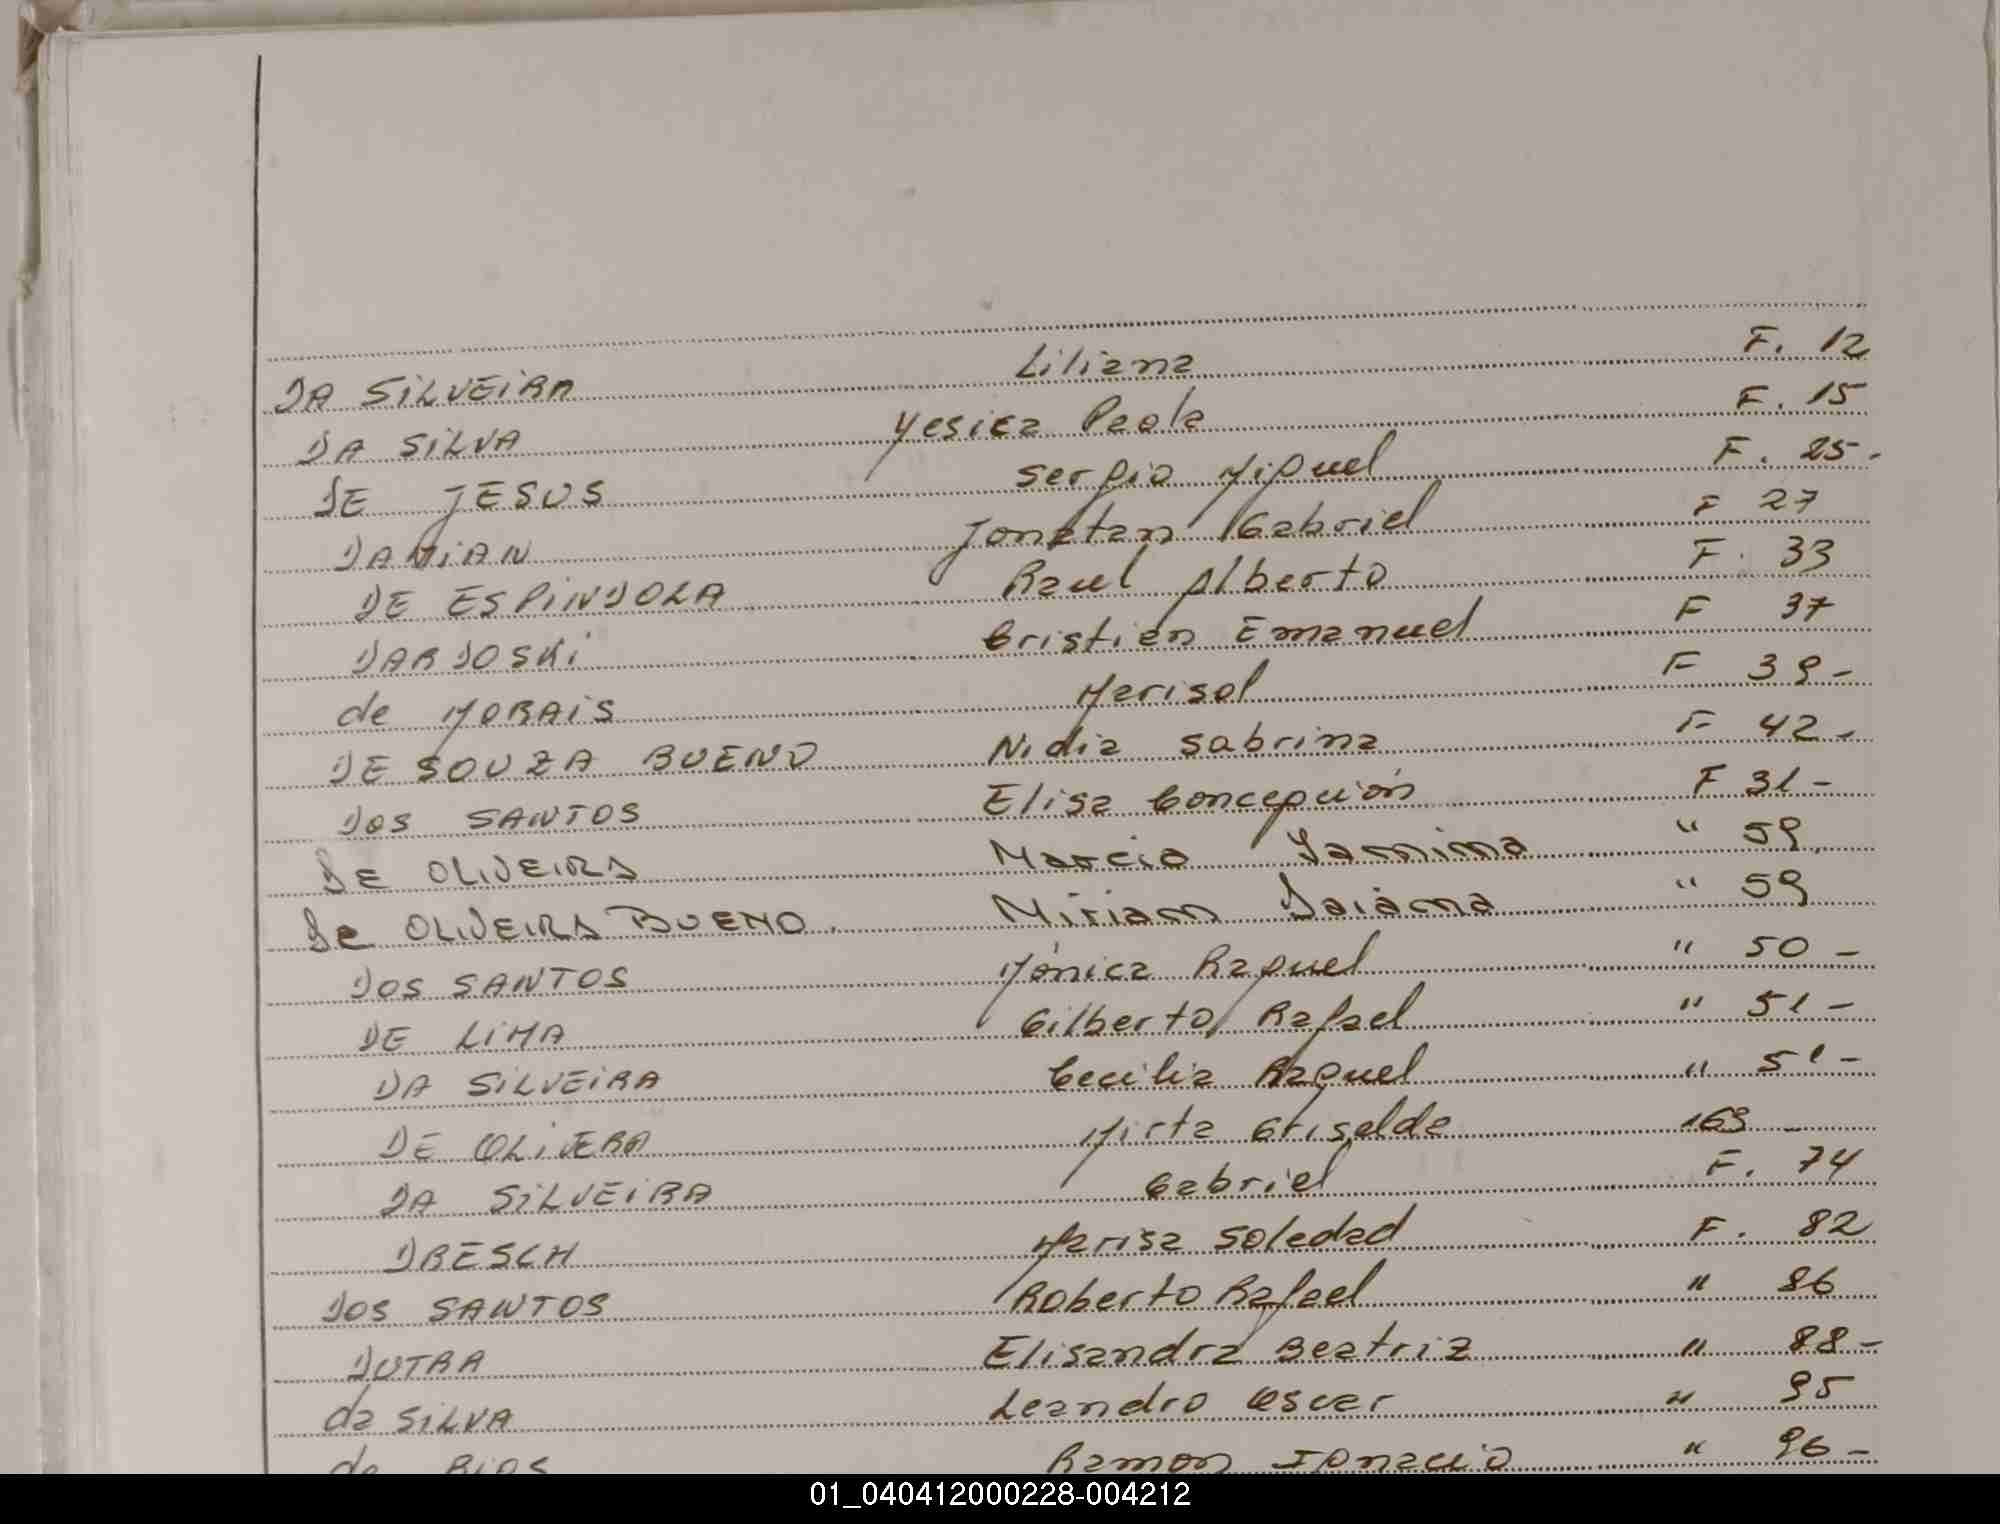 DA SiLVEiRA Liliana F. 12
DA SiLVA Yesica Paola F. 15
DE JESUS Sergio Miguel F. 25-
DAMiAN Jonatan Gabriel F 27
DE ESPiNDOLA Raul Alberto F. 33
DARDOSKi Cristian Emanuel F 37
de MORAiS Marisol F 39-
DE SOUZA BUENO Nidia Sabrina F 42-
DOS SANTOS Elisa Concepción F 31-
DE OLIVEIRA Marcia Yamima " 59
De OLIVEIRA BUENO. Miriam Daiana " 59
DOS SANTOS Mónica Raquel " 50-
DE LiMA Gilberto Rafael " 51-
DA SiLVEiRA Cecilia Raquel " 51-
DE OLiVERA Mirta Griselda 163-
DA SiLVEiRA Gabriel F. 74
DRESCH Marisa Soledad F. 82
DOS SANTOS Roberto Rafael " 86
DUTRA Elisandra Beatriz " 88-
da SiLVA Leandro Oscar " 95
de RiOS Ramon Ignacio " 96-
01_040412000228-004212